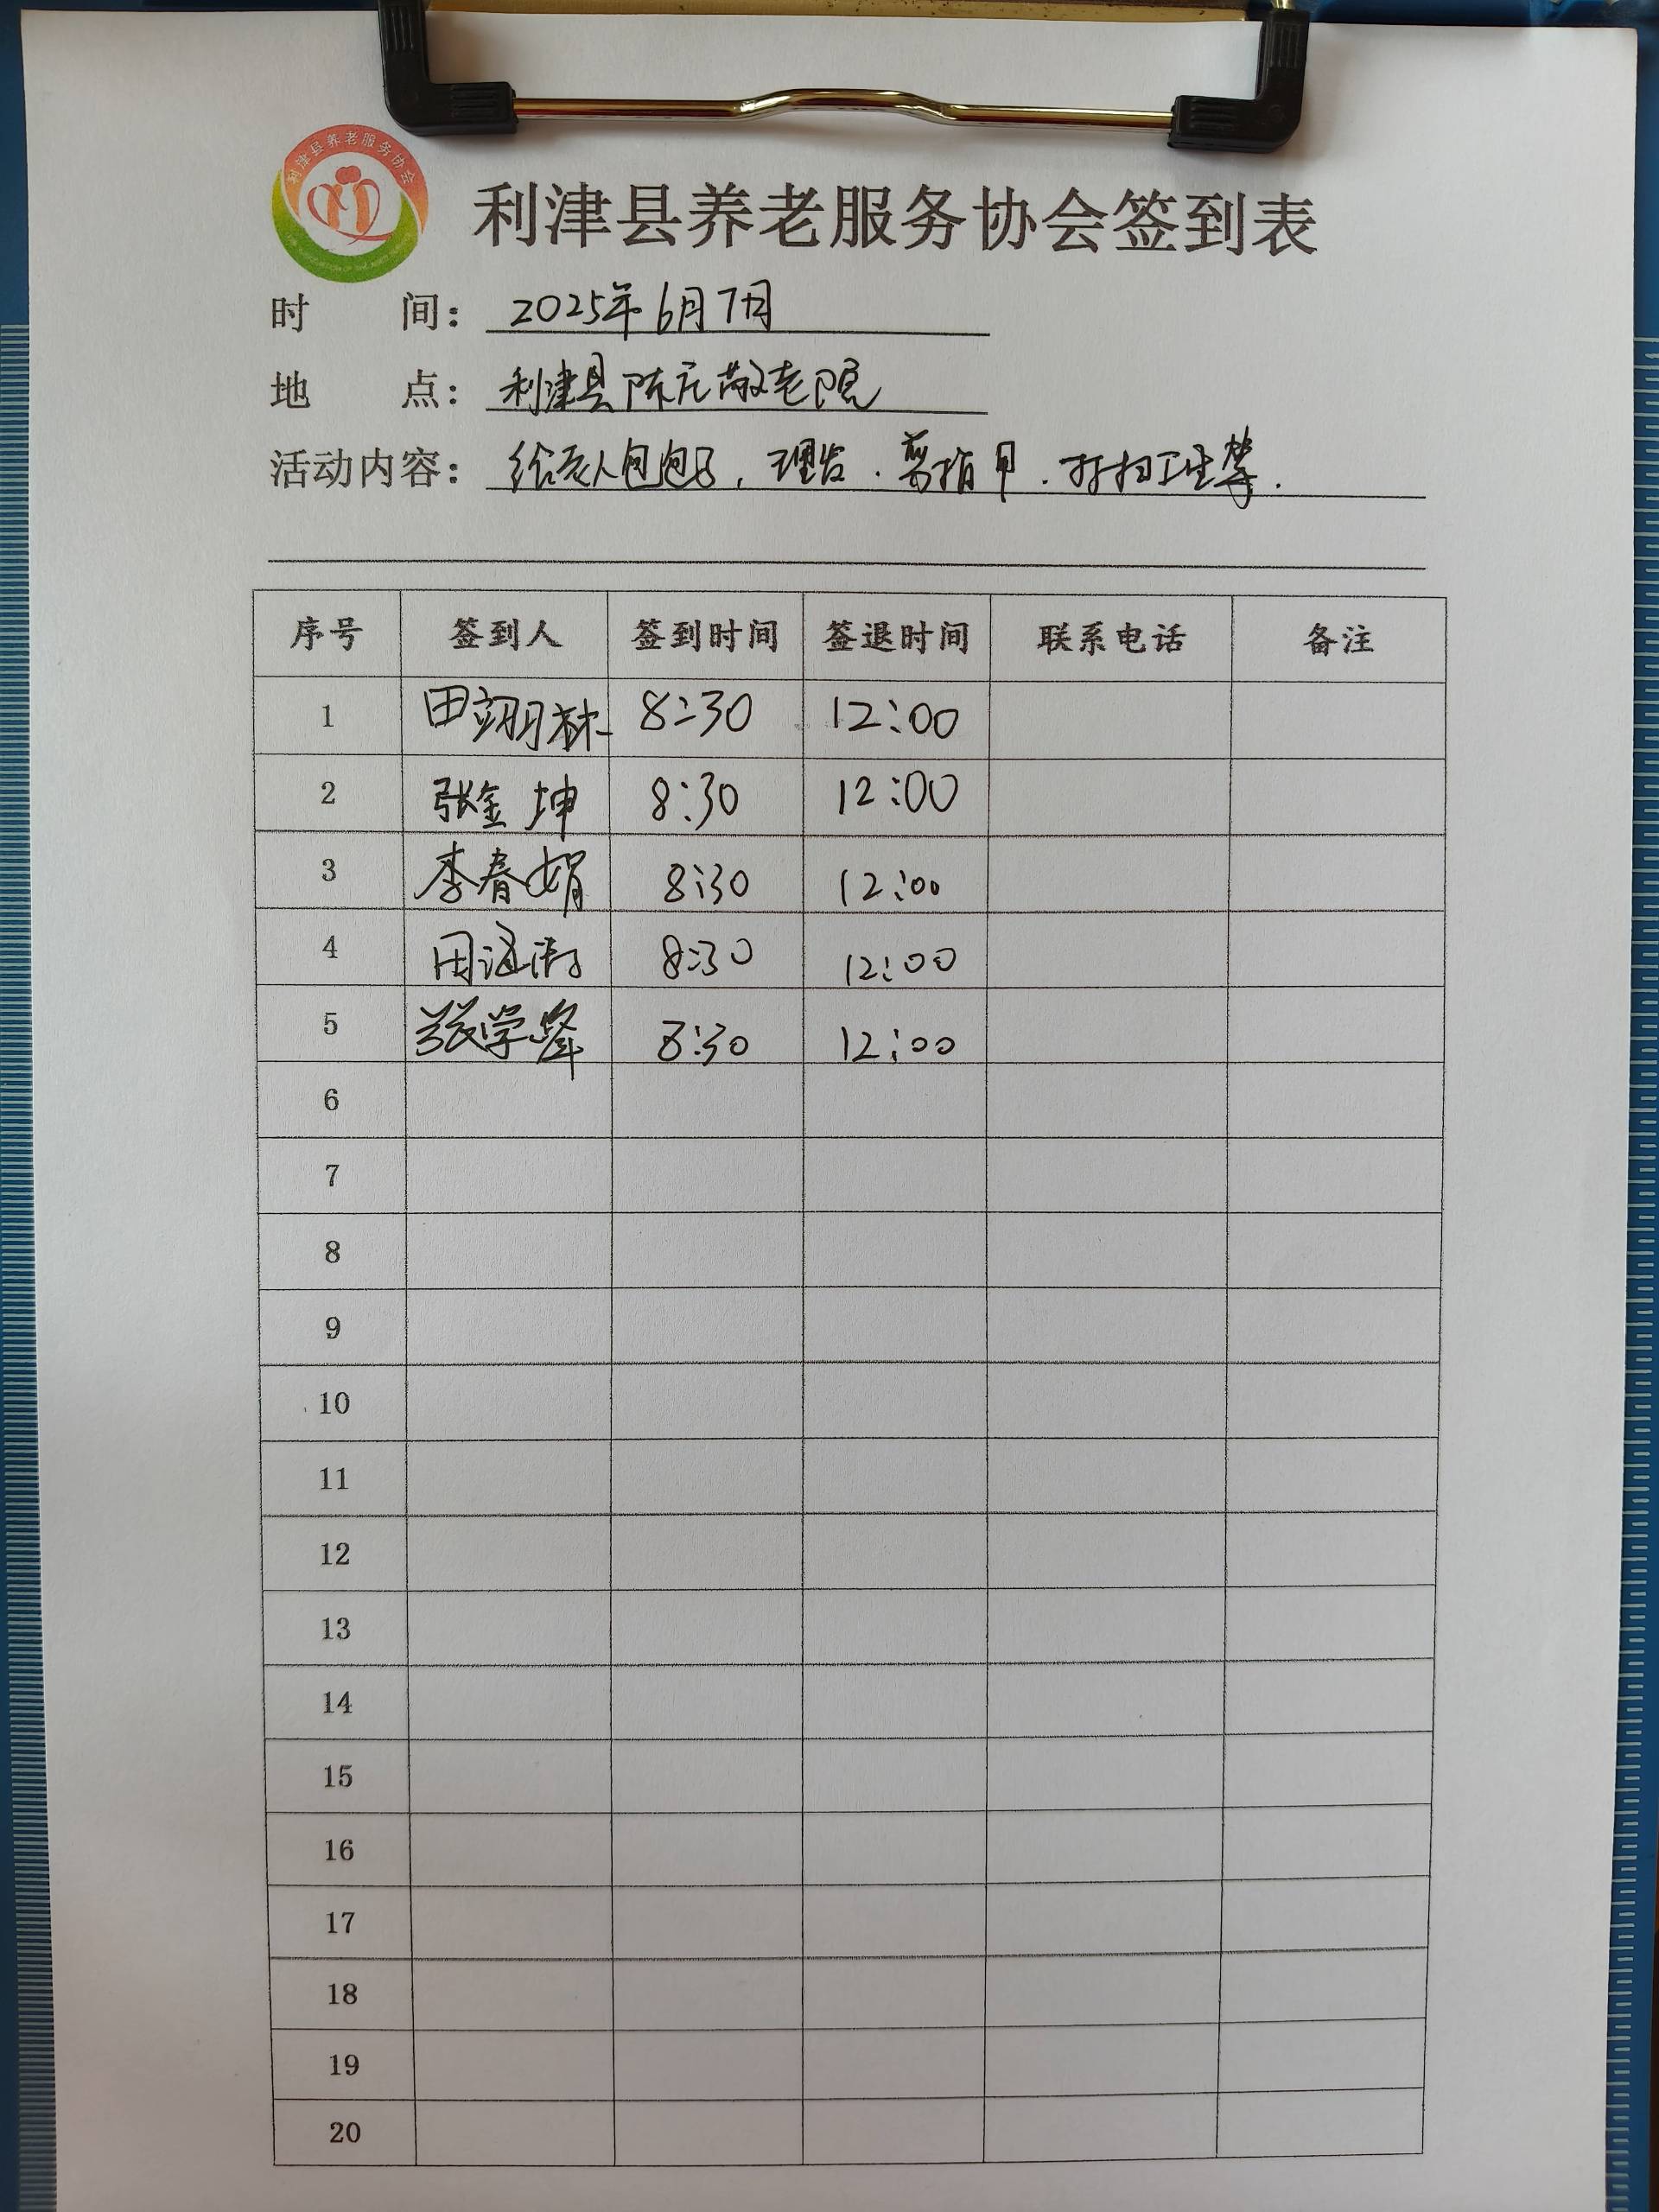 利津县养老服务协会
利津县养老服务协会签到表
时 间: 2025年6月7日
地 点: 利津县陈庄敬老院
活动内容: 给老人包包子, 理发. 剪指甲. 打扫卫生等.
序号 签到人 签到时间 签退时间 联系电话 备注
1 田翊林 8:30 12:00
2 张金坤 8:30 12:00
3 李春娟 8:30 12:00
4 8:30 12:00
5 张学峰 8:30 12:00
6
7
8
9
10
11
12
13
14
15
16
17
18
19
20